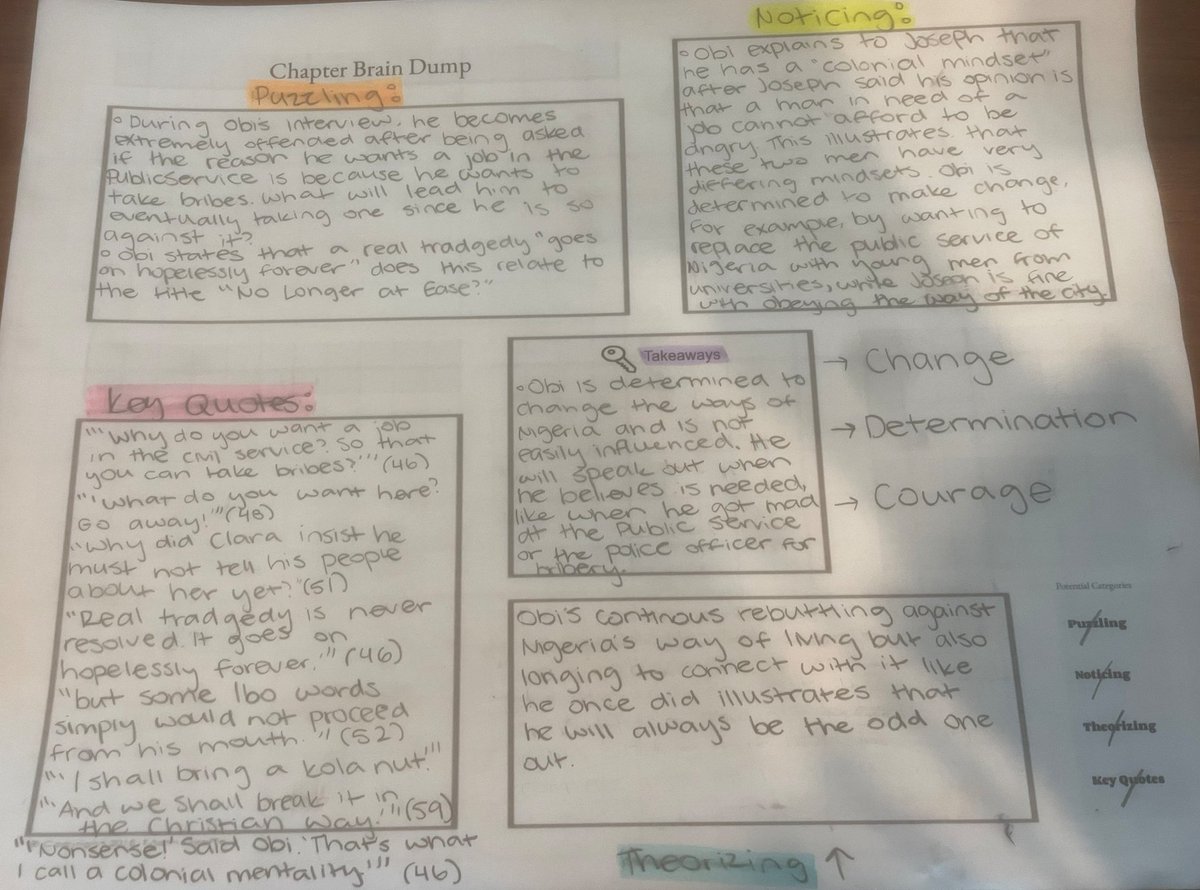 Chapter Brain Dump
Puzzling:
◦ During Obi's interview, he becomes
extremely offended after being asked
if the reason he wants a job in the
Public Service is because he wants to
take bribes. What will lead him to
eventually taking one since he is so
against it?
◦ Obi states that a real tradgedy "goes
on hopelessly forever" does this relate to
the title "No Longer at Ease?"
Noticing:
◦ Obi explains to Joseph that
he has a "colonial mindset"
after Joseph said his opinion is
that a man in need of a
job cannot afford to be
angry. This illustrates that
these two men have very
differing mindsets. Obi is
determined to make change,
for example, by wanting to
replace the public service of
Nigeria with young men from
universities, while Joseph is fine
with obeying the way of the city.
Key Quotes:
"'Why do you want a job
in the civil service? So that
you can take bribes?'" (46)
"'What do you want here?
Go away!'" (48)
"Why did Clara insist he
must not tell his people
about her yet?" (51)
"Real tradgedy is never
resolved. It goes on
hopelessly forever.'" (46)
"but some Ibo words
simply would not proceed
from his mouth." (52)
"'I shall bring a kola nut.'"
"'And we shall break it in
the Christian way.'" (59)
"'Nonsense!' Said Obi. 'That's what
I call a colonial mentality'" (46)
Takeaways
◦ Obi is determined to
change the ways of
Nigeria and is not
easily influenced. He
will speak out when
he believes is needed,
like when he got mad
at the Public Service
or the police officer for
bribery.
→ Change
→ Determination
→ Courage
Obi's continous rebutting against
Nigeria's way of living but also
longing to connect with it like
he once did illustrates that
he will always be the odd one
out.
Theorizing ↑
Potential Categories
Puzzling
Noticing
Theorizing
Key Quotes